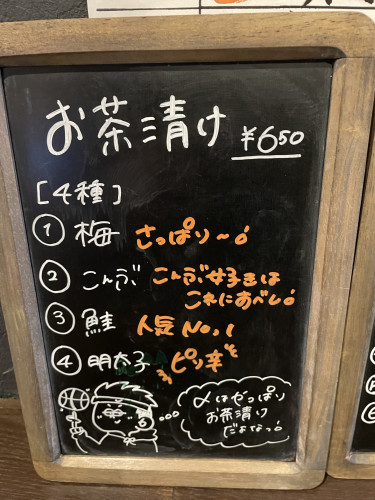 お茶漬け ¥650
[4種]
① 梅 さっぱり〜!
② こんぶ こんぶ好きは
これにあべし!
③ 鮭 人気 No.1
④ 明太子 ピリ辛
〆はやっぱり
お茶漬け
だよなっ!